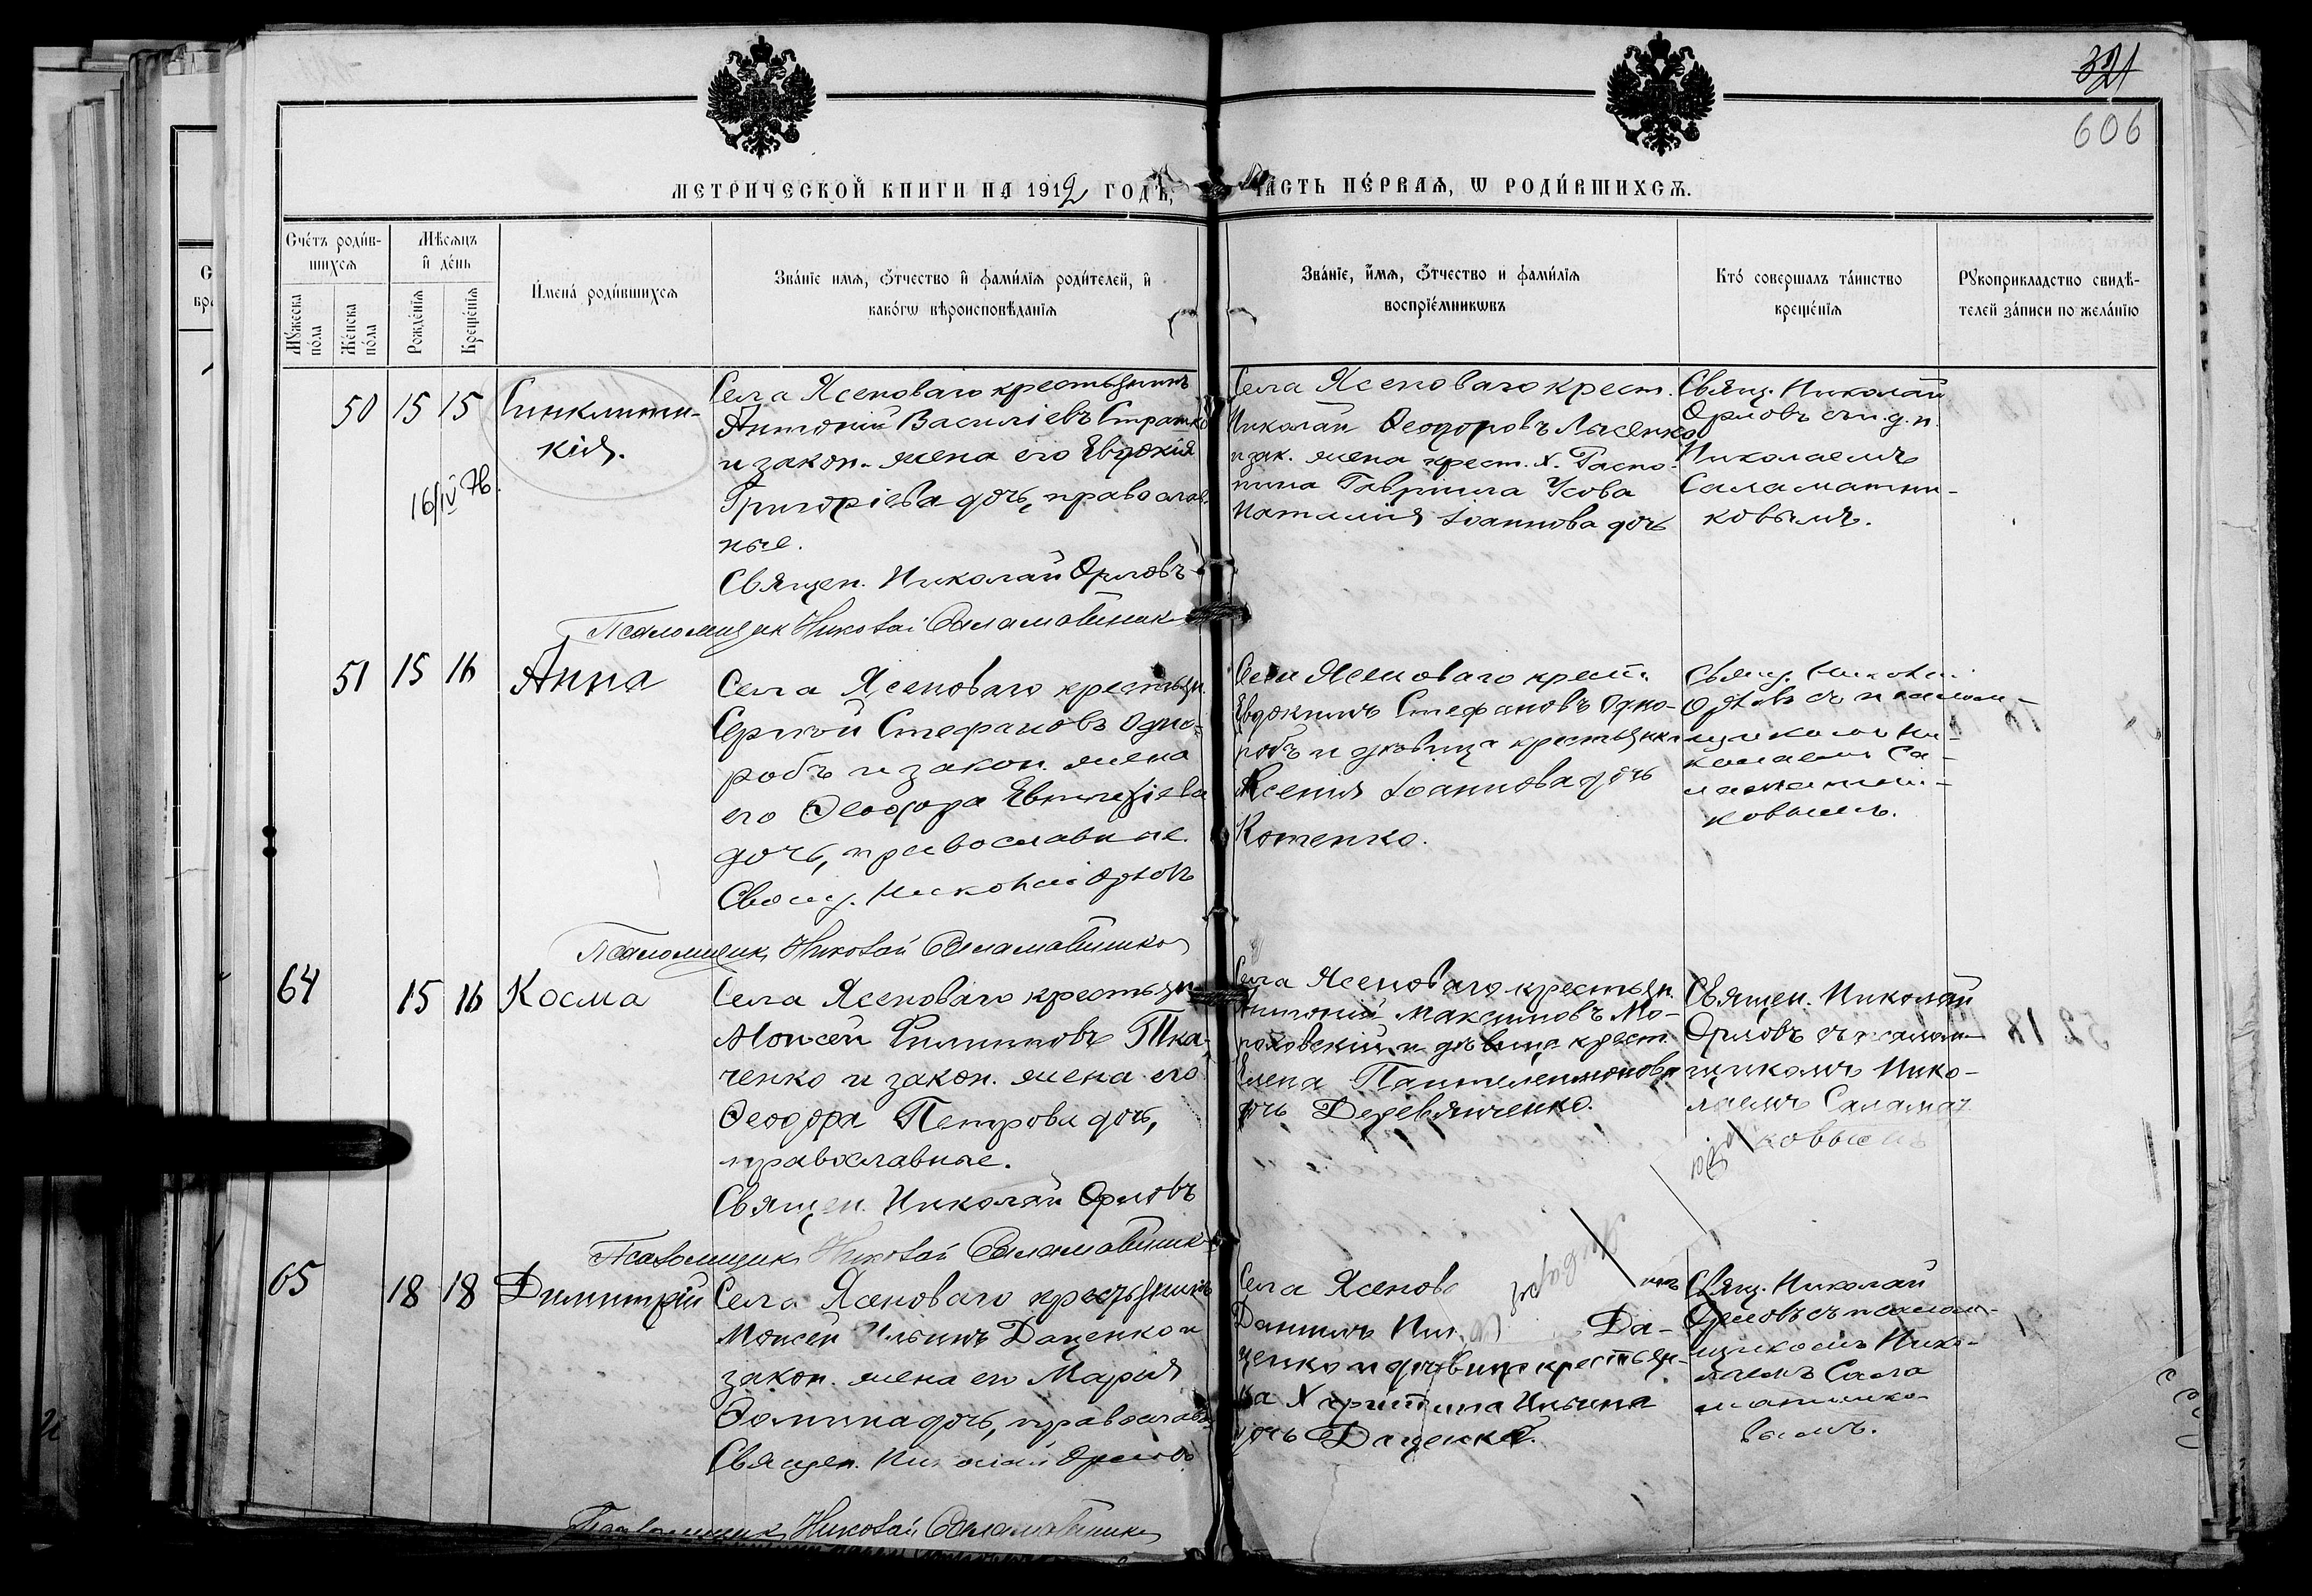 321
606
МЕТРИЧЕСКОЙ КНИГИ НА 1912 ГОДЪ, ЧАСТЬ ПЕ́РВАЯ, Ѡ РОДИ́ВШИХСЯ.
Сче́тъ роди́в-
шихся
Мꙋ́жеска по́ла
Же́нска по́ла
Мѣ́сяцъ и҆ де́нь
Рожде́нїя
Креще́нїя
И҆мена̀ роди́вшихся
Зва́нїе имя, ѻ҆́тчество и҆ фами́лїя роди́телей, и҆
како́гѡ вѣроисповѣ́данїя
Зва́нїе, и҆́мя, ѻ҆́тчество и фами́лїя
воспрїе́мникѡвъ
Кто̀ соверша́лъ та́инство
креще́нїя
Рꙋкоприкладство свидѣ́-
телей за́писи по жела́нїю
50 15 15
Синклити-
кія.
16/IV
Села Ясеноваго крестьянинъ
Антоній Василіевъ
и закон. жена его Евдокія
Григоріева дочь, православ-
ные.
Священ. Николай Орловъ
Псаломщик Николай Саламатник
Села Ясеноваго крест.
Николай Ѳеодоровъ Лысенко
и зак. жена крест. х.
Гавріила Усова
Наталія Іоаннова дочь
Свящ. Николай
Орловъ
Николаемъ
Саламатни-
ковымъ.
51 15 16
Анна
Села Ясеноваго крестьян.
Сергей Стефановъ Одно-
робъ и закон. жена
его Ѳеодора
дочь, православные.
Свящ. Николай Орловъ
Псаломщик Николай Саламатников
Села Ясеноваго крест.
Евдокимъ Стефановъ Одно-
робъ и дѣвица крестьянка
Ксенія Іоаннова дочь
Котенко.
Свящ. Николай
Орловъ съ псалом-
щикомъ Ни-
колаемъ Са-
ламатни-
ковымъ.
64 15 16
Косма
Села Ясеноваго крестьян.
Моисей Филипповъ Тка-
ченко и закон. жена его
Ѳеодора Петрова дочь,
православные.
Священ. Николай Орловъ
Псаломщик Николай Саламатник
Села Ясеноваго крестьян.
Антоній Максимовъ Мо-
и дѣвица крест.
Елена Пантелеимонова
дочь Деревянченко.
Священ. Николай
Орловъ съ псалом-
щикомъ Нико-
лаемъ Саламат
ковымъ
65 18 18
Димитрій
Села Ясеноваго крестьянинъ
Моисей Ильинъ Даценко и
закон. жена его Марія
Ѳомина дочь, православ-
Священ. Николай Орловъ
Псаломщик Николай Саламатник
Села Ясенов
Даніилъ Ил Да-
ценко и дѣвица крестьян-
ка Христина Ильина
дочь Даценко.
Свящ. Николай
Орловъ съ псалом-
щикомъ Нико-
лаемъ Сала
матнико-
вымъ.